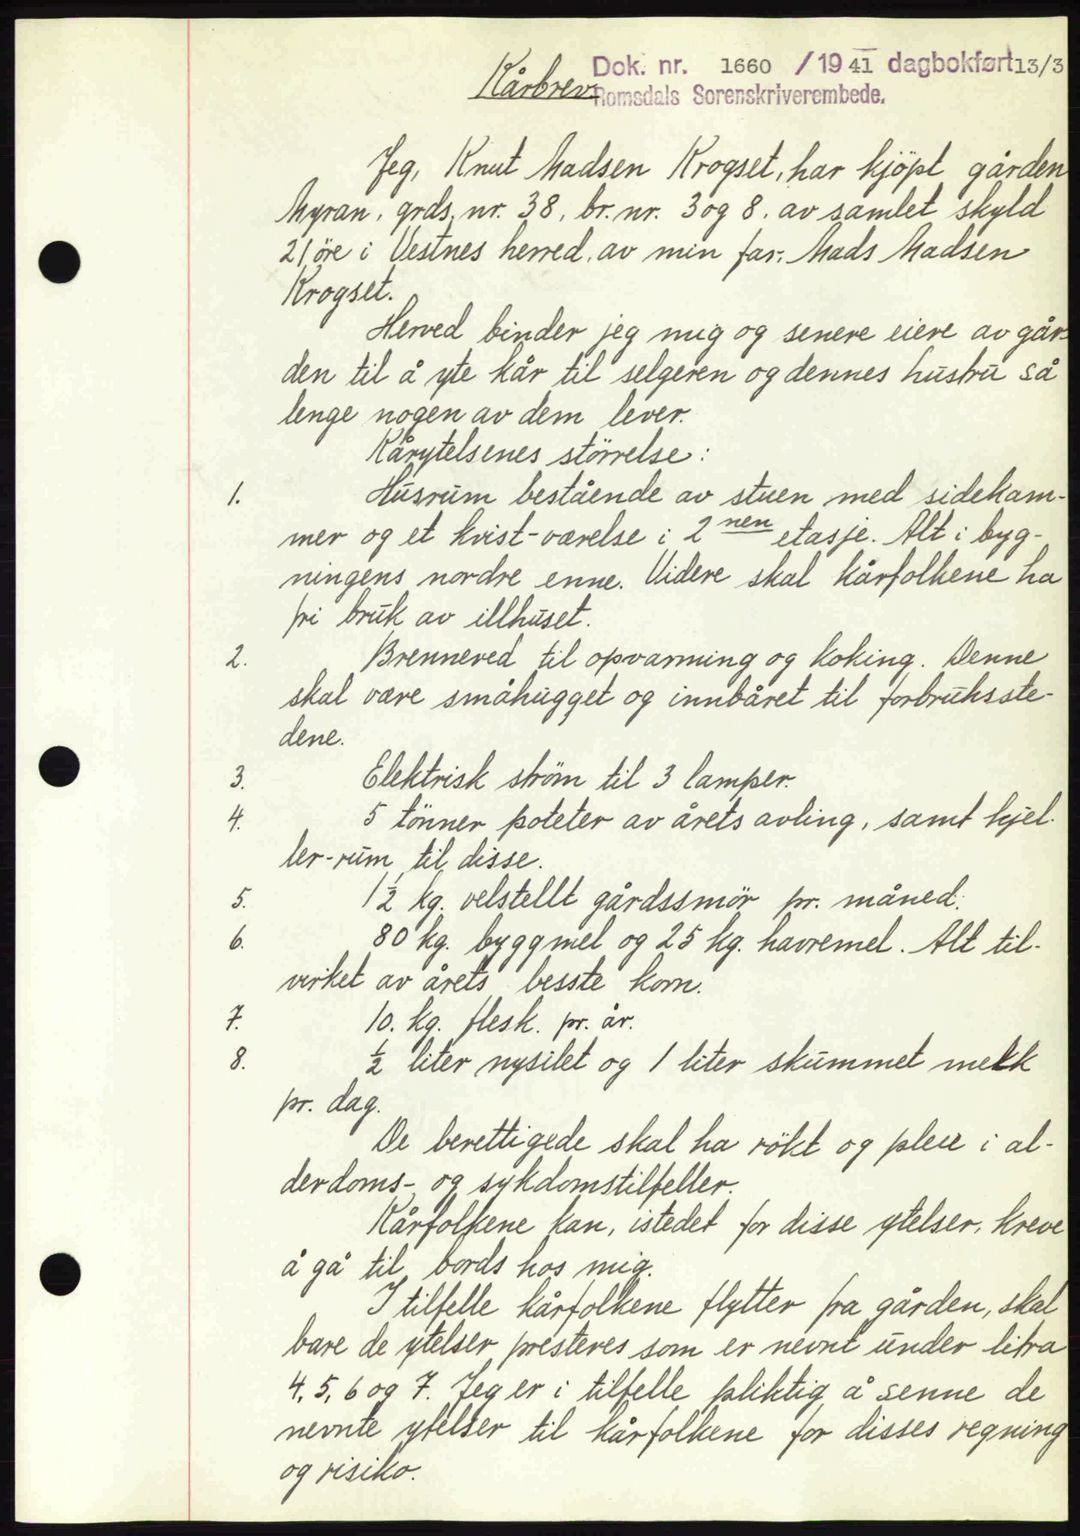 Kårbrev Dok. nr. 1660 / 19 41 dagbokført 13/3
Romsdals Sorenskriverembede.
Jeg, Knut Madsen Krogset, har kjöpt gården
Myran, grds. nr. 38, br. nr. 3 og 8, av samlet skyld
21 öre i Vestnes herred, av min far: Mads Madsen
Krogset.
Herved binder jeg mig og senere eiere av går-
den til å yte kår til selgeren og dennes hustru så
lenge nogen av dem lever.
Kårytelsenes störrelse:
1. Husrum bestående av stuen med sidekam-
mer og et kvist-værelse i 2 nen etasje. Alt i byg-
ningens nordre enne. Videre skal kårfolkene ha
fri bruk av illhuset.
2. Brenneved til opvarming og koking. Denne
skal være småhugget og innbåret til forbruksste-
dene.
3. Elektrisk ström til 3 lamper.
4. 5 tönner poteter av årets avling, samt kjel-
ler-rum til disse.
5. 1½ kg. velstellt gårdssmör pr. måned.
6. 80 kg. byggmel og 25 kg. havremel. Alt til-
virket av årets besste korn.
7. 10. kg. flesk. pr. år.
8. ½ liter nysilet og 1 liter skummet melk
pr. dag.
De berettigede skal ha rökt og pleie i al-
derdoms- og sykdomstilfeller.
Kårfolkene kan, istedet for disse ytelser, kreve
å gå til bords hos mig.
I tilfelle kårfolkene flytter fra gården, skal
bare de ytelser presteres som er nevnt under litra
4, 5, 6 og 7. Jeg er i tilfelle pliktig å senne de
nevnte ytelser til kårfolkene for disses regning
og risiko.